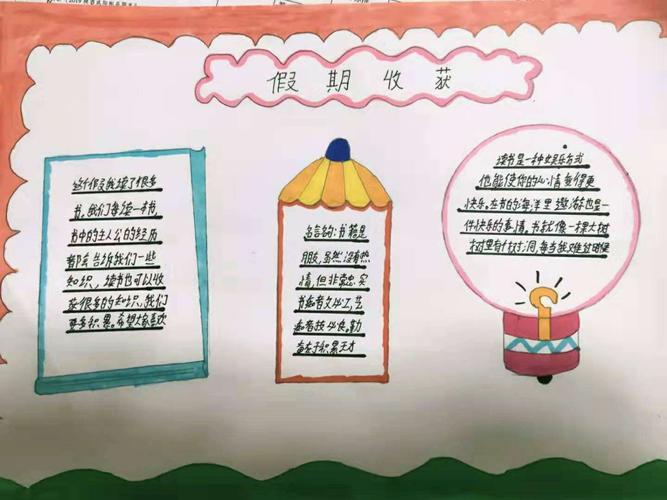 假期收获
这个假期我读了很多
书,我们每读一本书,
书中的主人公的经历
都会告诉我们一些
知识,读书也可以收
获很多的知识,我们
要多积累。希望大家喜欢
名言的:书籍是
朋友,虽然没有热
情,但非常忠实
书痴者文必工,艺
痴者技必良。勤
奋在于积累天才
读书是一种娱乐方式
他能使你的心情变得更
快乐。在书的海洋里遨游也是一
件快乐的事情,书就像一棵大树
树里有个树洞,每当我难过时便